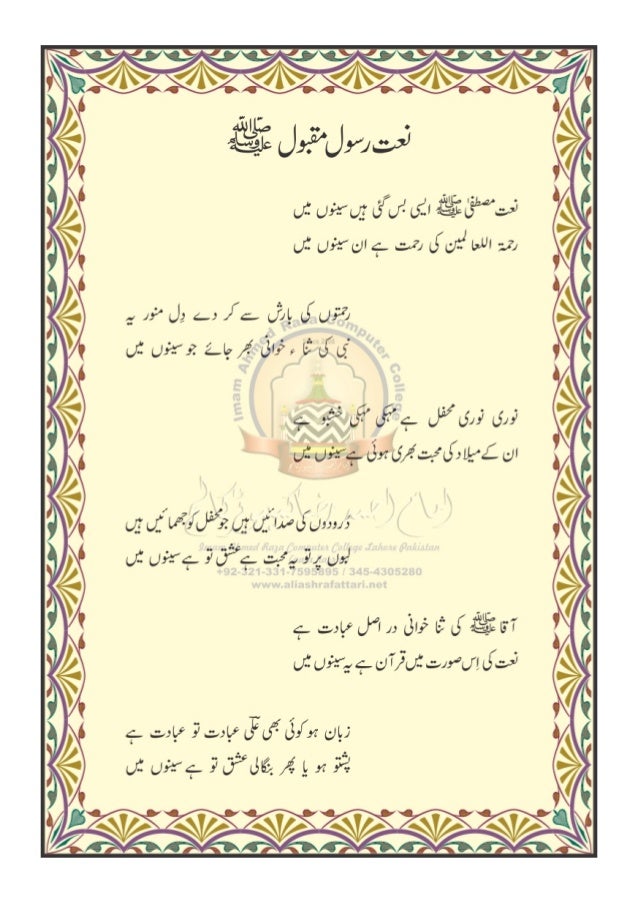 نعت رسول مقبول ﷺ
نعت مصطفیٰ ﷺ ایسی بس گئی ہیں سینوں میں
رحمۃ اللعالمین کی رحمت ہے ان سینوں میں
رحمتوں کی بارش سے کر دے دِل منور یہ
نبی کی ثناء خوانی بھر جائے جو سینوں میں
نوری نوری محفل ہے مہکی مہکی خشبو ہے
ان کے میلاد کی محبت بھری ہوئی ہے سینوں میں
درودوں کی صدائیں ہیں جو محفل کو جھمائیں ہیں
لبوں پر تو یہ محبت ہے عشق تو ہے سینوں میں
آقا ﷺ کی ثنا خوانی در اصل عبادت ہے
نعت کی اِس صورت میں قرآن ہے یہ سینوں میں
زبان ہو کوئی بھی علی عبادت تو عبادت ہے
پشتو ہو یا پھر بنگالی عشق تو ہے سینوں میں
Imam Ahmed Raza Computer College
Imam Ahmed Raza Computer College Lahore Pakistan
+92-321-331-7595895 / 345-4305280
www.aliashrafattari.net